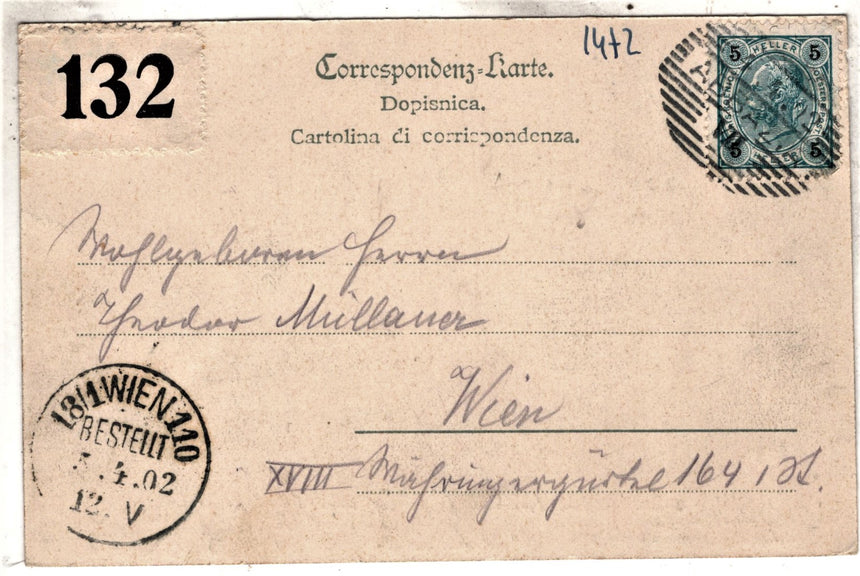 132
1472
Correspondenz-Karte.
Dopisnica.
Cartolina di corrispondenza.
5 HELLER 5
5 HELLER 5
Wohlgeboren Herrn
Theodor Müllauer
Wien
XVIII Währingergürtel 164 i St.
18/1 WIEN 110
BESTELLT
5.4.02
12. V